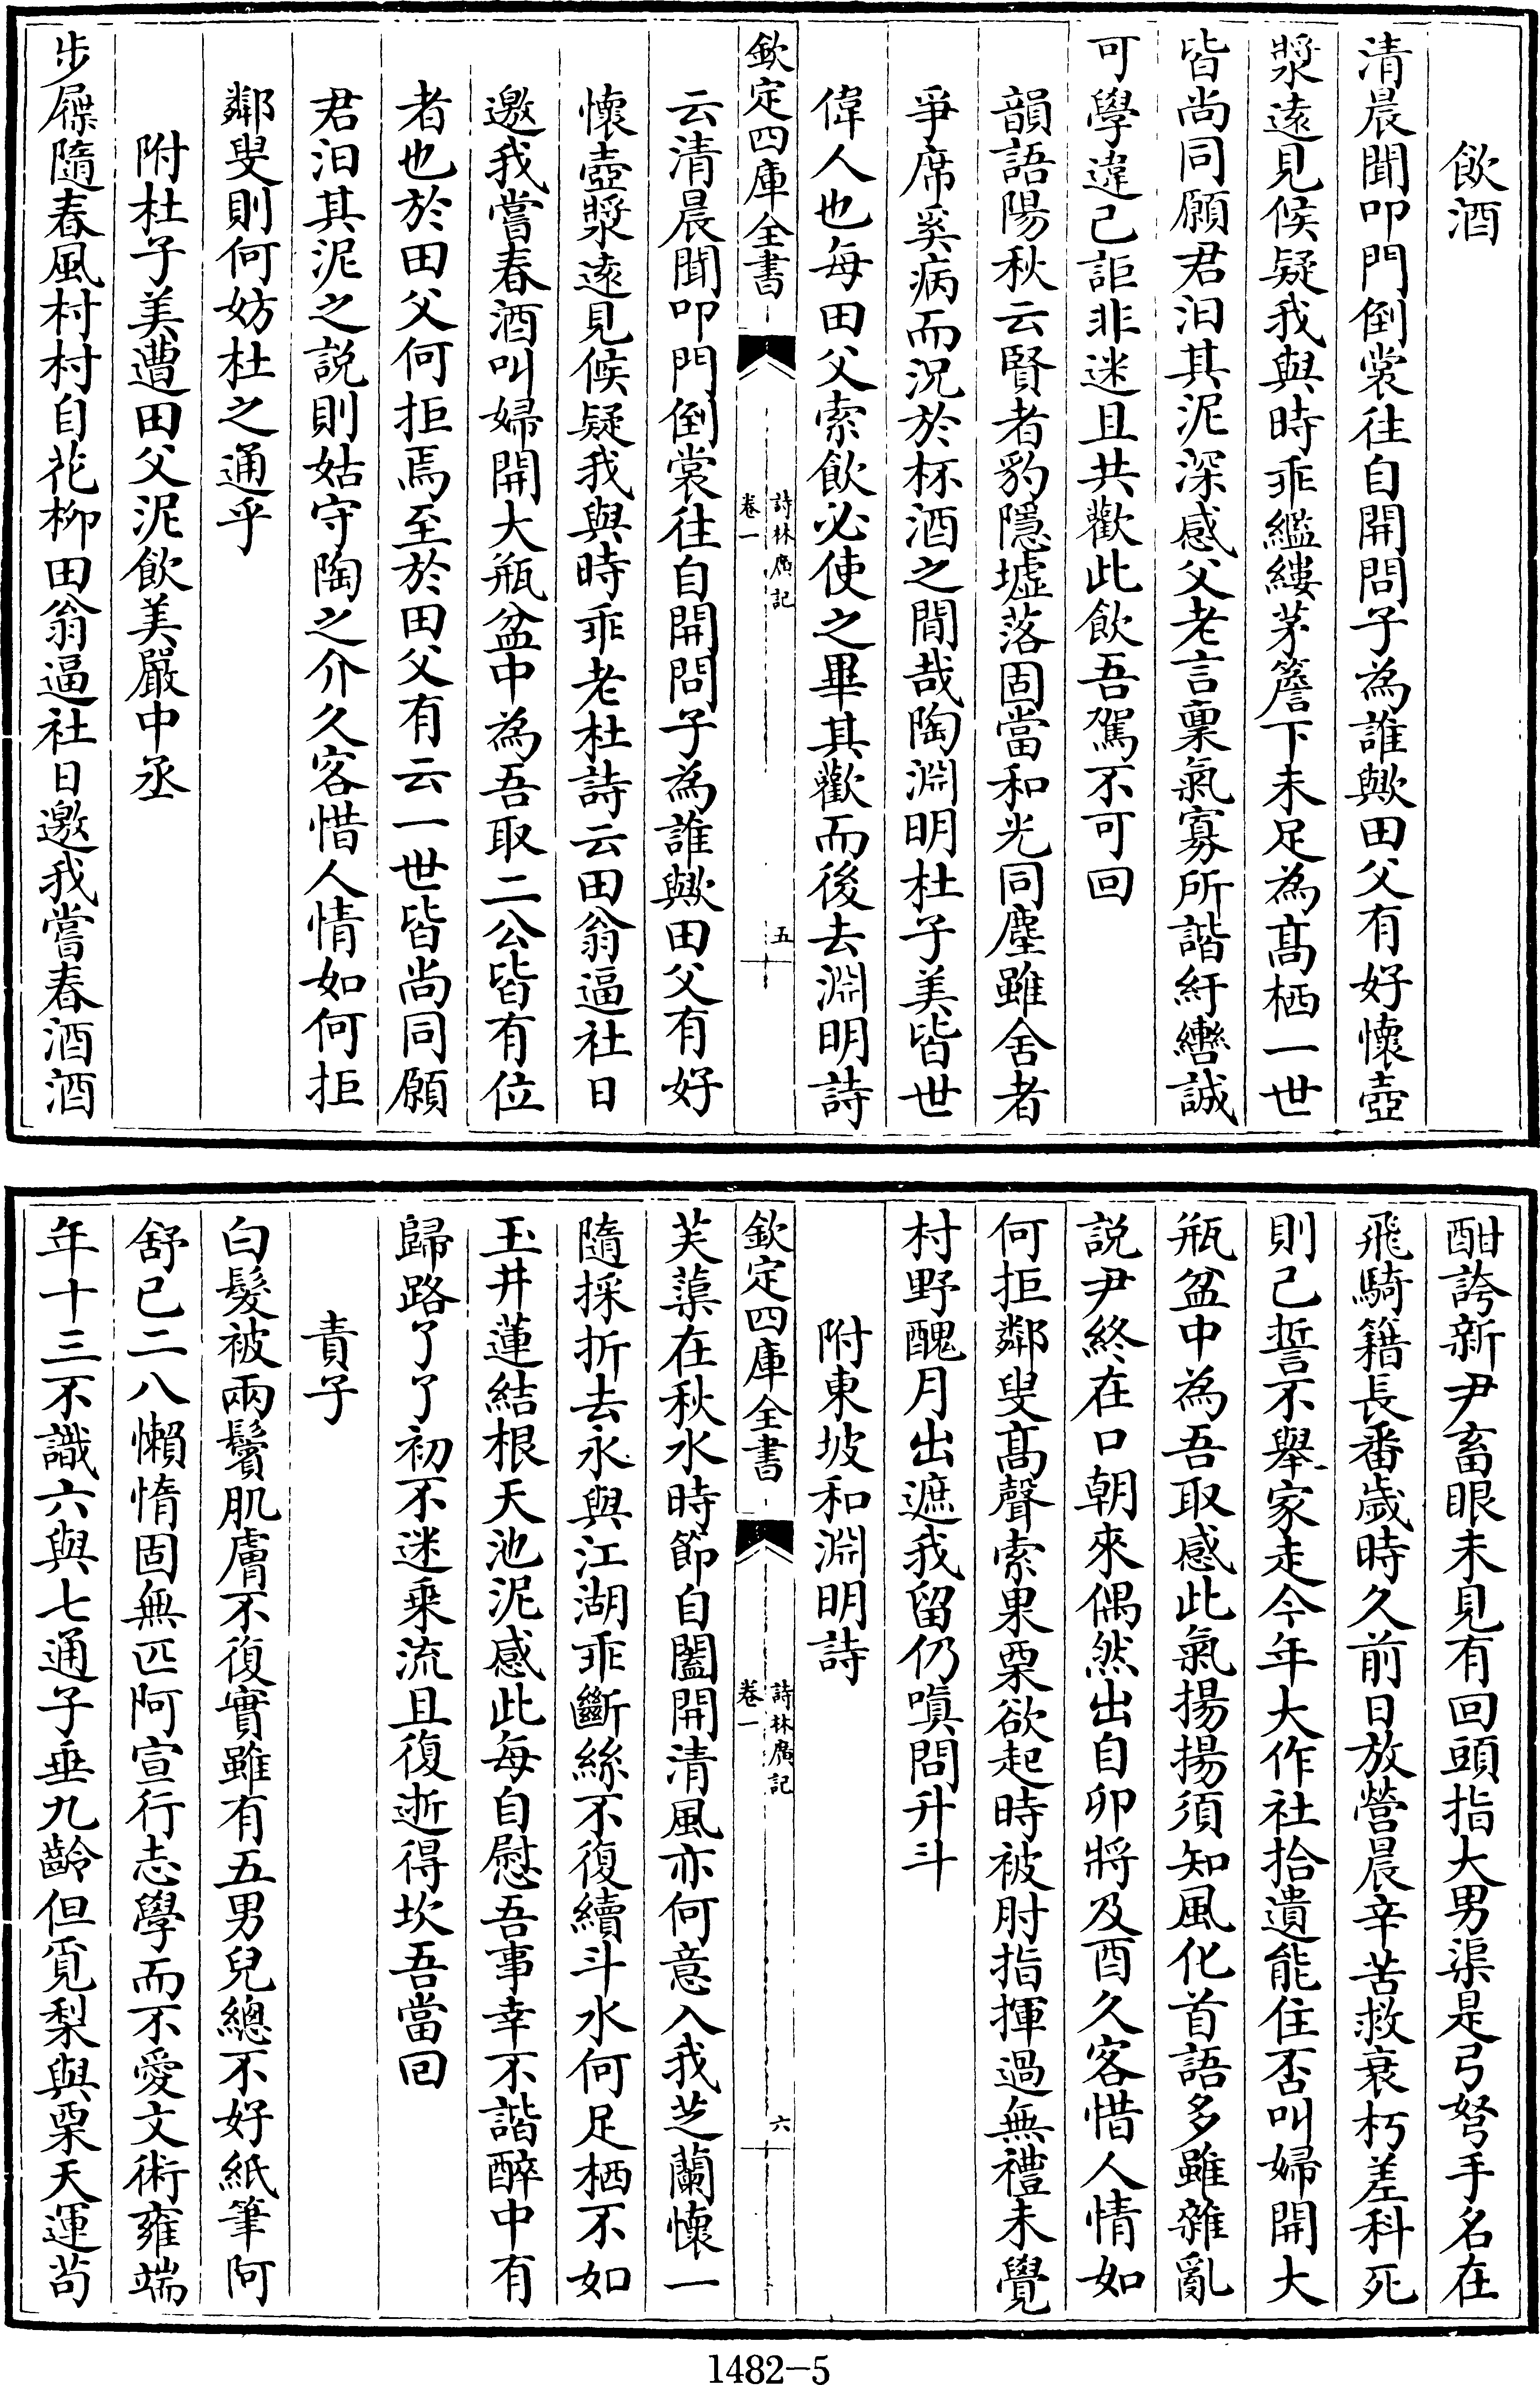 飲酒
清晨聞叩門倒裳往自開問子為誰歟田父有好懷壺
漿遠見候疑我與時乖繿縷茅簷下未足為髙栖一世
皆尚同願君汩其泥深感父老言稟氣寡所諧紆轡誠
可學違己詎非迷且共歡此飲吾駕不可回
韻語陽秋云賢者豹隱墟落固當和光同塵雖舍者
爭席奚病而況於杯酒之間哉陶淵明杜子美皆世
偉人也每田父索飲必使之畢其歡而後去淵明詩
欽定四庫全書
詩林廣記
卷一
五
云清晨聞叩門倒裳往自開問子為誰歟田父有好
懷壺漿遠見候疑我與時乖老杜詩云田翁逼社日
邀我嘗春酒叫婦開大瓶盆中為吾取二公皆有位
者也於田父何拒焉至於田父有云一世皆尚同願
君汩其泥之說則姑守陶之介久客惜人情如何拒
鄰叟則何妨杜之通乎
附杜子美遭田父泥飲美嚴中丞
步屧隨春風村村自花柳田翁逼社日邀我嘗春酒酒
酣誇新尹畜眼未見有回頭指大男渠是弓弩手名在
飛騎籍長番歲時久前日放營晨辛苦救衰朽差科死
則已誓不舉家走今年大作社拾遺能住否叫婦開大
瓶盆中為吾取感此氣揚揚須知風化首語多雖雜亂
說尹終在口朝來偶然出自卯將及酉久客惜人情如
何拒鄰叟髙聲索果栗欲起時被肘指揮過無禮未覺
村野醜月出遮我留仍嗔問升斗
附東坡和淵明詩
欽定四庫全書
詩林廣記
卷一
六
芙蕖在秋水時節自闔開清風亦何意入我芝蘭懷一
隨採折去永與江湖乖斷絲不復續斗水何足栖不如
玉井蓮結根天池泥感此每自慰吾事幸不諧醉中有
歸路了了初不迷乗流且復逝得坎吾當回
責子
白髮被兩鬢肌膚不復實雖有五男兒總不好紙筆阿
舒已二八懶惰固無匹阿宣行志學而不愛文術雍端
年十三不識六與七通子垂九齡但覓梨與栗天運苟
1482-5